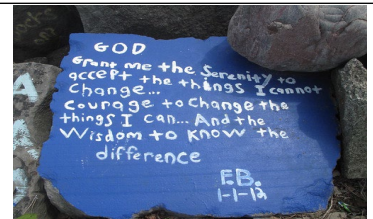 GOD
Grant me the Serenity to
accept the things I cannot
Change...
Courage to Change the
things I can... And the
Wisdom to Know the
difference
F.B.
1-1-12